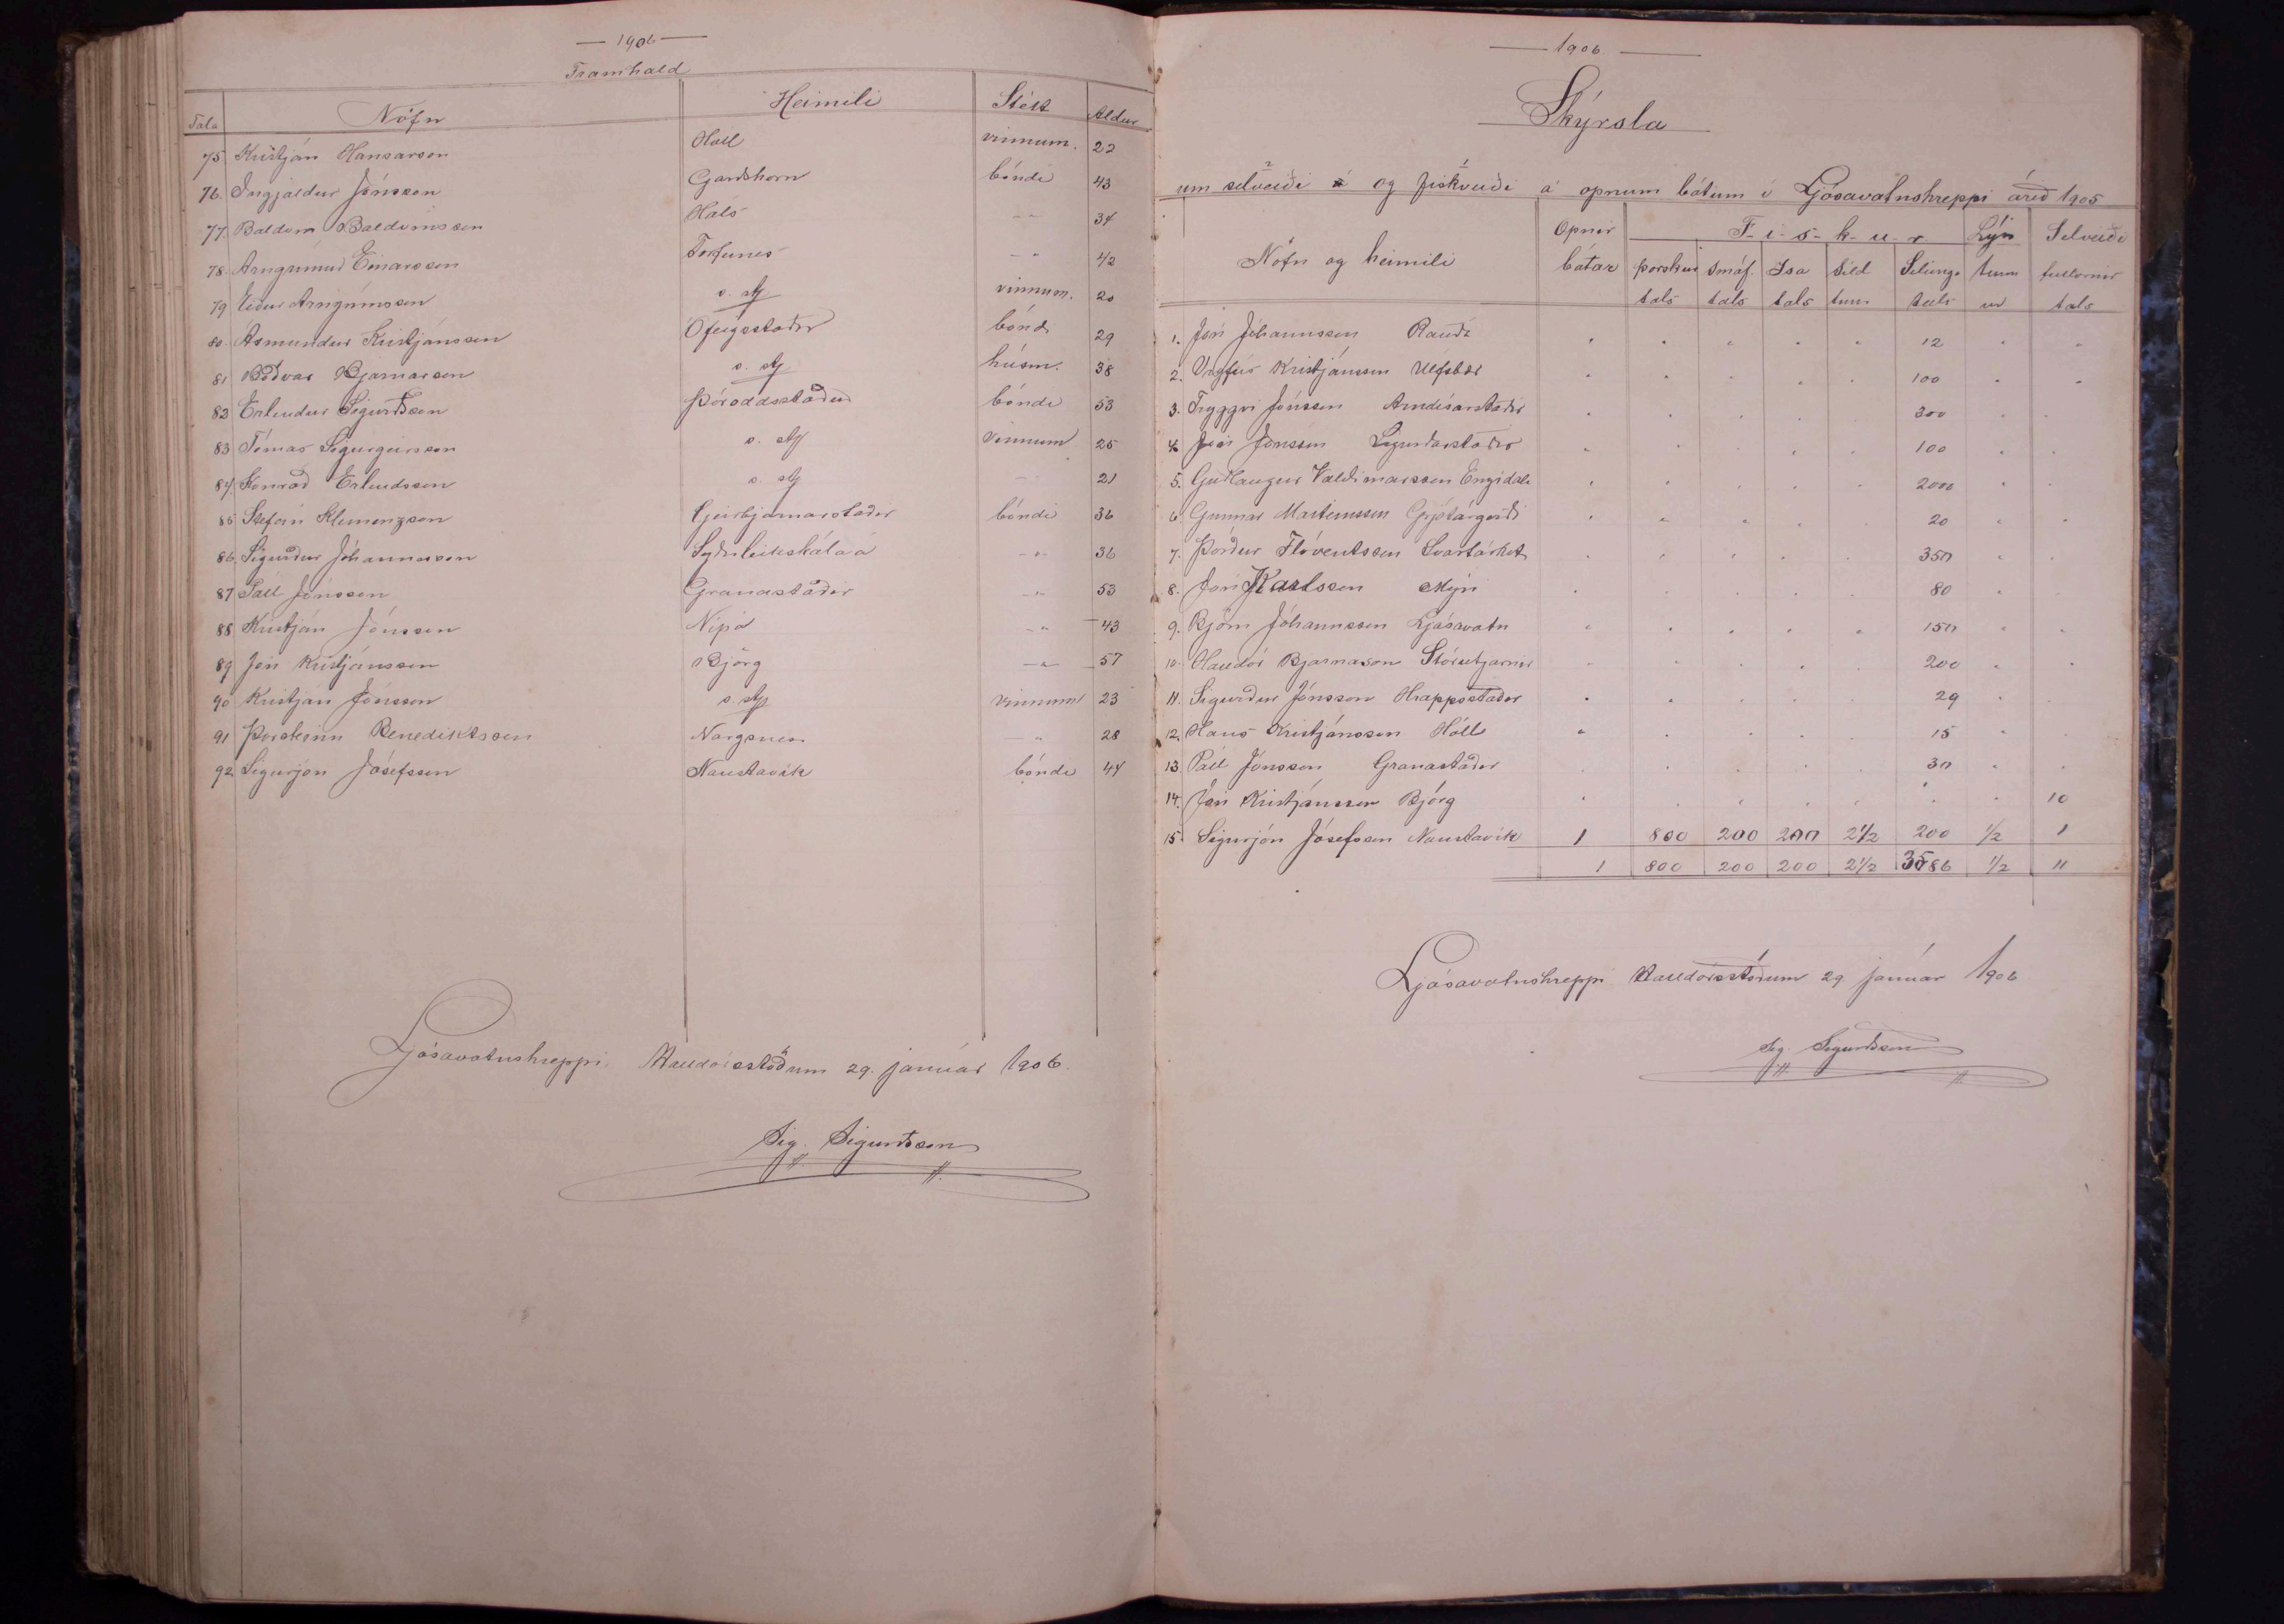 — 1906 —
Framhald
Tala Nöfn Heimili Stétt Aldur
75. Kristján Hansarson Hóll vinnum. 22
76. Ingjaldur Jónsson Garðshorn bóndi 43
77. Baldvin Baldvinsson Háls — „ 34
78. Arngrímur Einarsson Torfunes — „ 42
79 Eiður Arngrímsson s. st. vinnum. 20
80. Ásmundur Kristjánsson Ófeigsstaðir bóndi 29
81 Böðvar Bjarnarson s. st. húsm. 38
82 Erlendur Sigurðsson Þóroddsstaður bóndi 53
83 Tómas Sigurgeirsson s. st. Vinnum 25
84. Konráð Erlendsson s. st. — 21
85 Stefán Klemenzson Geirbjarnarstaðir bóndi 36
86. Sigurður Jóhannesson Syðrileikskálaá — „ 36
87 Páll Jónsson Granastaðir — „ 53
88 Kristján Jónsson Nípá — „ 43
89 Jón Kristjánsson Björg — „ 57
90 Kristján Jónsson s. st. vinnum 23
91 Þorsteinn Benediktsson Nargsnes — „ 28
92. Sigurjón Jósefsson Naustavík bóndi 44
Ljósavatnshreppi, Halldórsstöðum 29. janúar 1906.
Sig. Sigurðsson
— 1906. —
Skýrsla
um selveiði og fiskveiði á opnum bátum í Ljósavatnshreppi árið 1905
Nöfn og heimili Opnir bátar F-i-s-k-u-r Lýsi Selveiði
þorskur smáf. Ísa síld Silunga tunn fullornir
tals tals tals tunn tals ur tals
1. Jón Jóhannsson Rauðá „ „ „ „ „ 12 „ „
2. Vigfús Kristjánsson Úlfsbær „ „ „ „ „ 100 „ „
3. Tryggvi Jónsson Arndísarstaðir „ „ „ „ „ 300 „ „
4 Jón Jónsson Sigurðarstaðir „ „ „ „ „ 100 „ „
5. Guðlaugur Valdimarsson Engidalr „ „ „ „ „ 2000 „ „
6. Gunnar Marteinsson Grjótárgerði „ „ „ „ „ 20 „ „
7. Þórður Flóventsson Svartárkot „ „ „ „ „ 350 „ „
8. Jón Karlsson Mýri „ „ „ „ „ 80 „ „
9. Björn Jóhannsson Ljósavatn „ „ „ „ „ 150 „ „
10. Halldór Bjarnason Stórutjarnir „ „ „ „ „ 200 „ „
11. Sigurður Jónsson Hrappsstaðir „ „ „ „ „ 29 „ „
12. Hans Kristjánsson Hóll „ „ „ „ „ 15 „ „
13. Páll Jónsson Granastaðir „ „ „ „ „ 30 „ „
14. Jón Kristjánsson Björg „ „ „ „ „ „ „ 10
15. Sigurjón Jósefsson Naustavík 1 800 200 200 2 1/2 200 1/2 1
1 800 200 200 2 1/2 3586 1/2 11
Ljósavatnshreppi Halldórsstöðum 29 janúar 1906
Sig. Sigurðsson